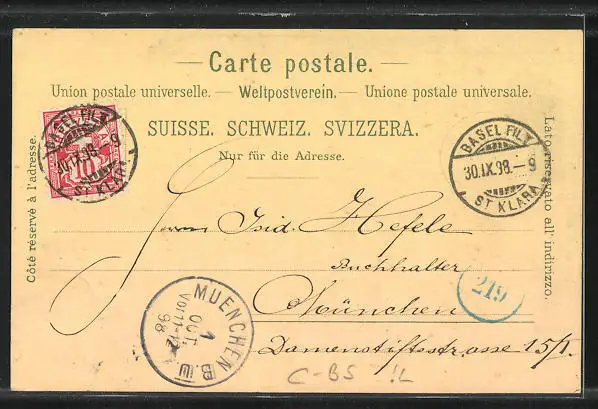 Carte postale.
Union postale universelle. — Weltpostverein. — Unione postale universale.
SUISSE. SCHWEIZ. SVIZZERA.
Nur für die Adresse.
Côté réservé à l'adresse.
Lato riservato all' indirizzo.
BASEL FIL.
30.IX.98.-9
ST KLARA
BASEL FIL.
30.IX.98.-9
ST KLARA
Herrn Isid. Hefele
Buchhalter
München
Damenstiftsstrasse 15/I.
219
MUENCHEN B.W
1
OCT.
Vor 11-12
98
C-BS !L